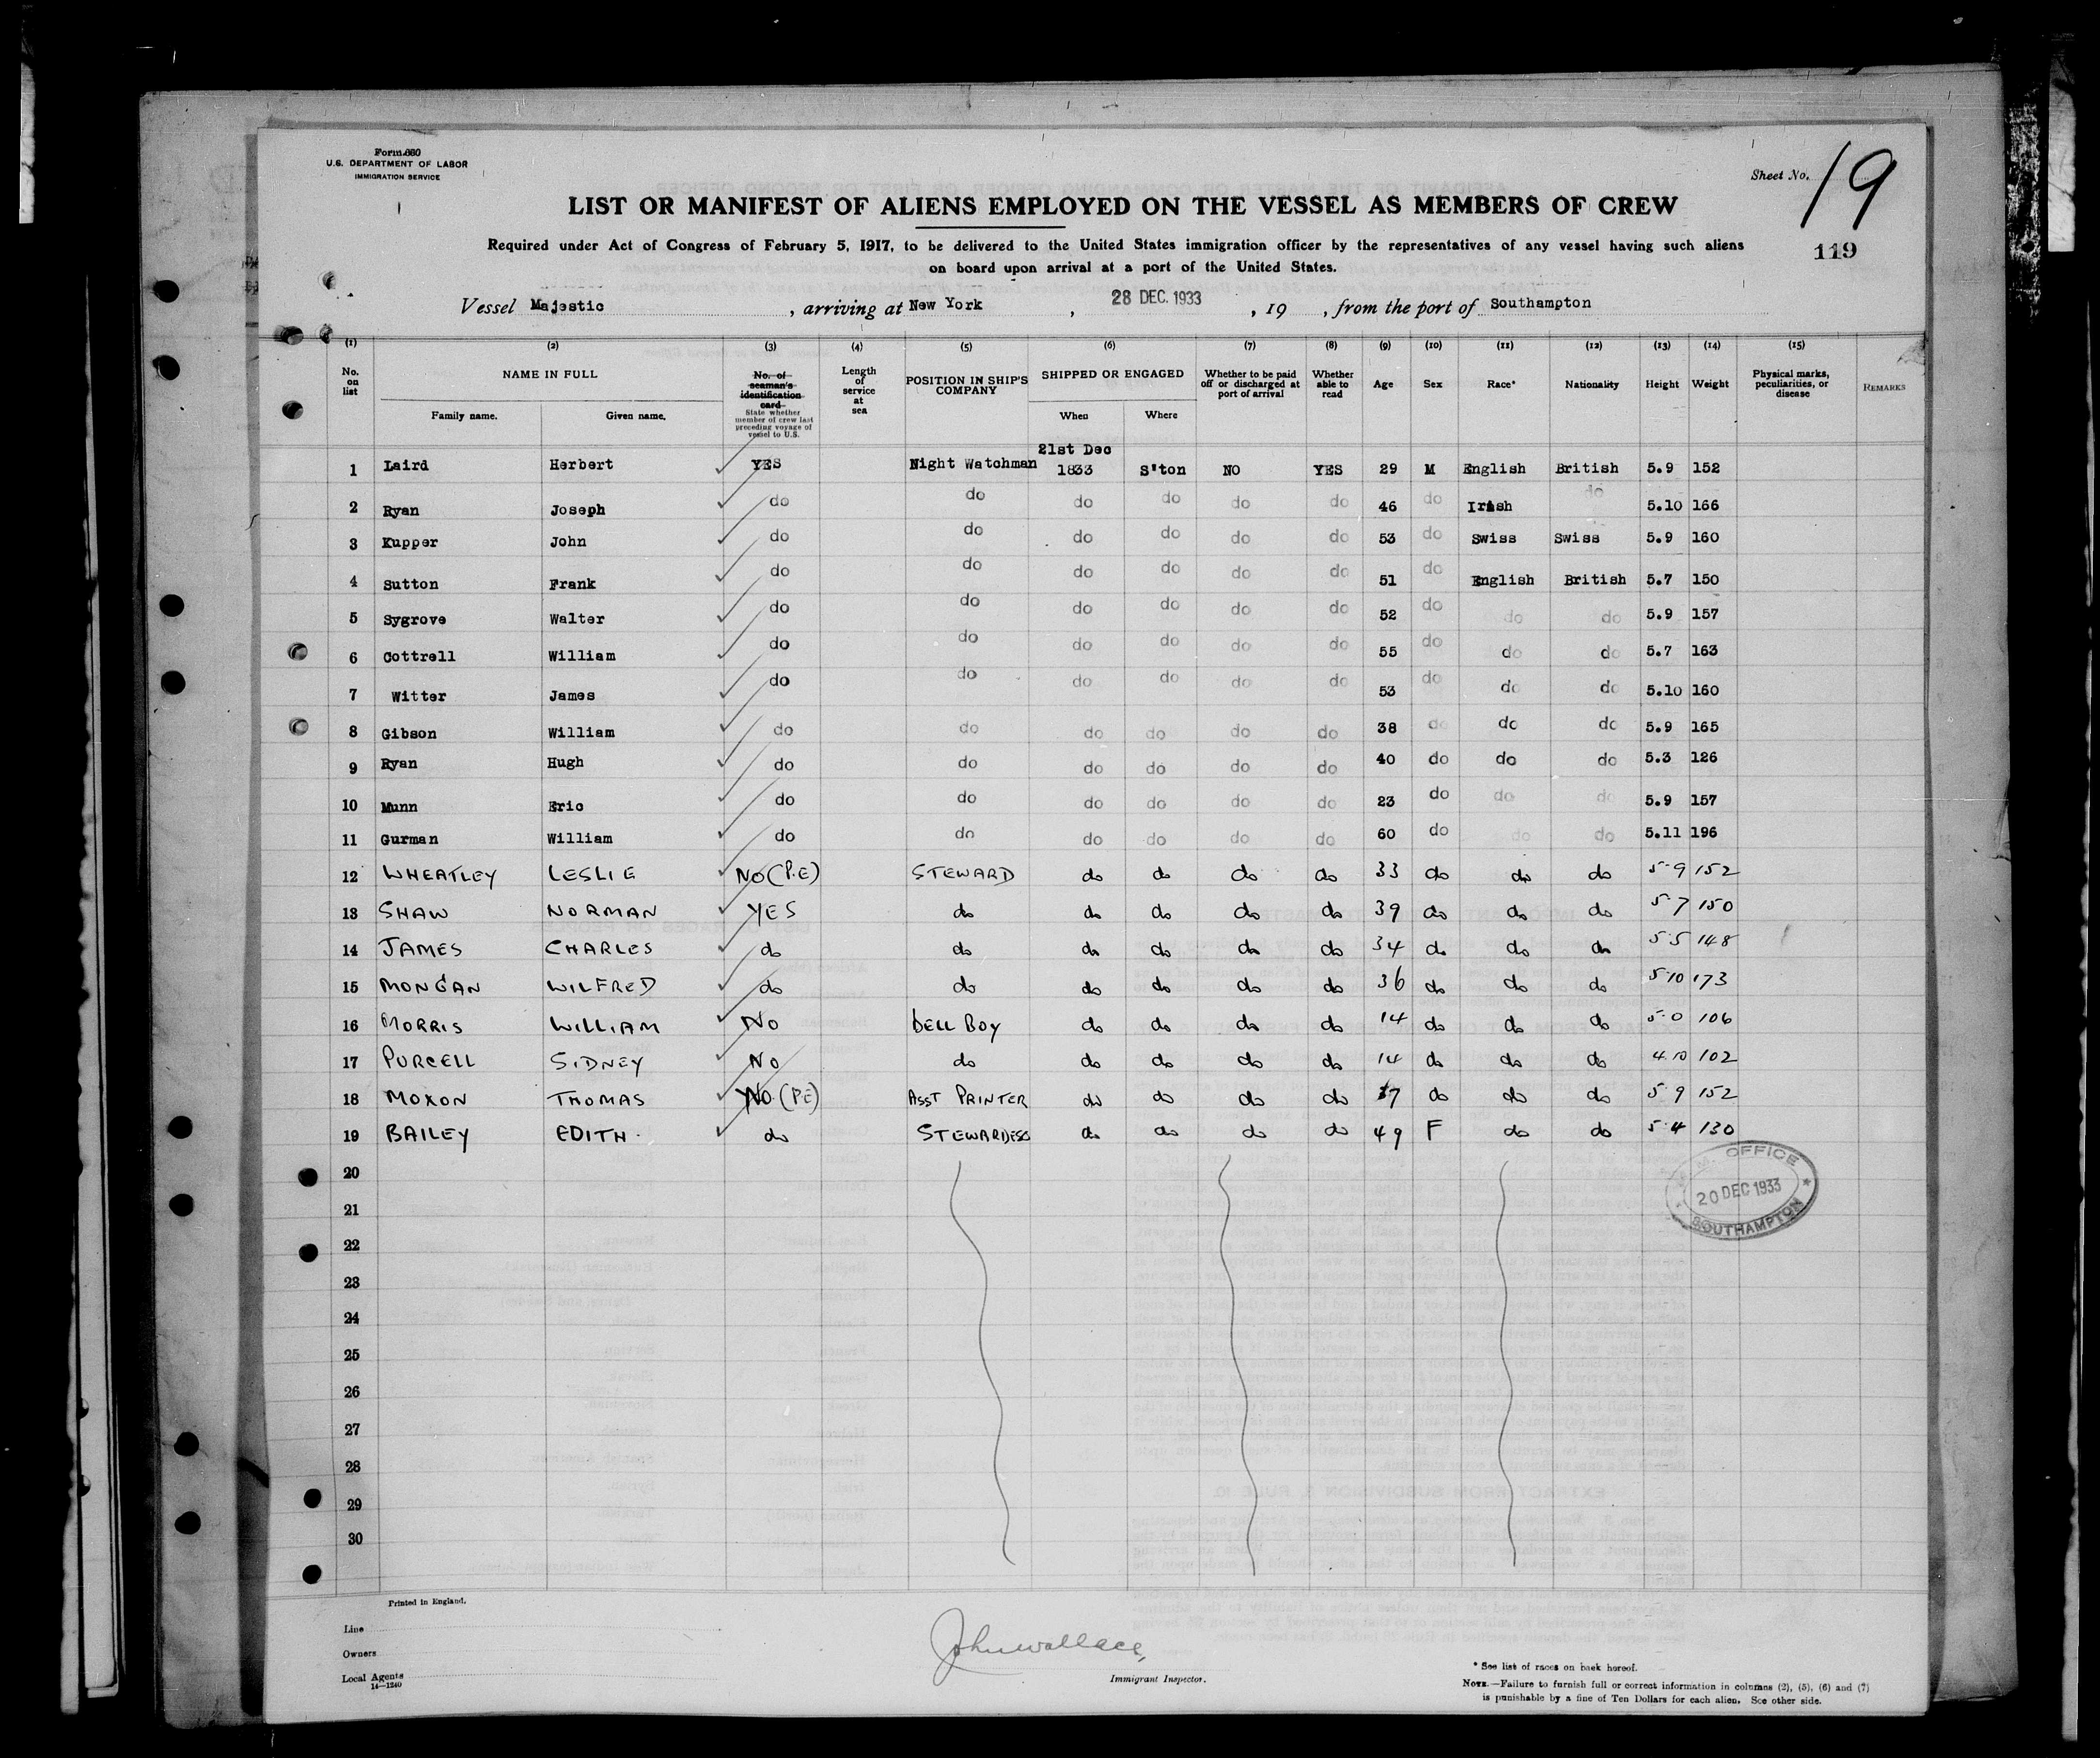 Form 680
U.S. DEPARTMENT OF LABOR
IMMIGRATION SERVICE
Sheet No. 19
LIST OR MANIFEST OF ALIENS EMPLOYED ON THE VESSEL AS MEMBERS OF CREW
119
Required under Act of Congress of February 5, 1917, to be delivered to the United States immigration officer by the representatives of any vessel having such aliens
on board upon arrival at a port of the United States.
Vessel Majestic , arriving at New York , 28 DEC. 1933 , 19 , from the port of Southampton
(1) (2) (3) (4) (5) (6) (7) (8) (9) (10) (11) (12) (13) (14) (15)
No. on list NAME IN FULL Family name. Given name. No. of seaman's identification card State whether member of crew last preceding voyage of vessel to U.S. Length of service at sea POSITION IN SHIP'S COMPANY SHIPPED OR ENGAGED When Where Whether to be paid off or discharged at port of arrival Whether able to read Age Sex Race* Nationality Height Weight Physical marks, peculiarities, or disease REMARKS
1 Laird Herbert YES Night Watchman 21st Dec 1833 S'ton NO YES 29 M English British 5.9 152
2 Ryan Joseph do do do do do do 46 do Irish do 5.10 166
3 Kupper John do do do do do do 53 do Swiss Swiss 5.9 160
4 Sutton Frank do do do do do do 51 do English British 5.7 150
5 Sygrove Walter do do do do do do 52 do do do 5.9 157
6 Cottrell William do do do do do do 55 do do do 5.7 163
7 Witter James do do do do do do 53 do do do 5.10 160
8 Gibson William do do do do do do 38 do do do 5.9 165
9 Ryan Hugh do do do do do do 40 do do do 5.3 126
10 Munn Eric do do do do do do 23 do do do 5.9 157
11 Gurman William do do do do do do 60 do do do 5.11 196
12 WHEATLEY LESLIE NO (P.E) STEWARD do do do do 33 do do do 5-9 152
13 SHAW NORMAN YES do do do do do 39 do do do 5-7 150
14 JAMES CHARLES do do do do do do 34 do do do 5-5 148
15 MONGAN WILFRED do do do do do do 36 do do do 5-10 173
16 MORRIS WILLIAM NO BELL BOY do do do do 14 do do do 5-0 106
17 PURCELL SIDNEY NO do do do do do 14 do do do 4-10 102
18 MOXON THOMAS NO. (P.E) ASST PRINTER do do do do 7 do do do 5-9 152
19 BAILEY EDITH do STEWARDESS do do do do 49 F do do 5-4 130
20
OFFICE
20 DEC 1933
SOUTHAMPTON
21
22
23
24
25
26
27
28
29
30
Printed in England.
Line
Owners
Local Agents
14-1240
John Wallace
Immigrant Inspector.
* See list of races on back hereof.
NOTE.—Failure to furnish full or correct information in columns (2), (5), (6) and (7)
is punishable by a fine of Ten Dollars for each alien. See other side.